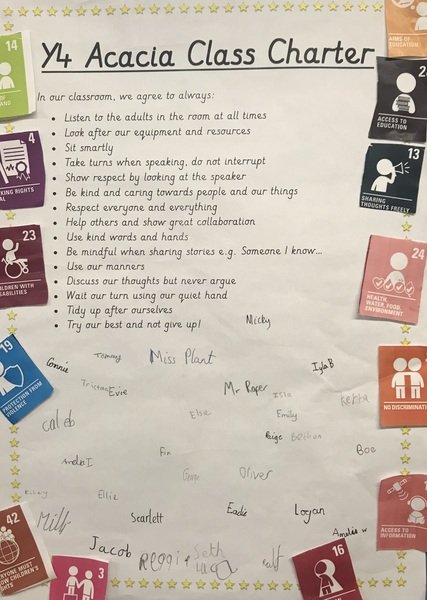 Y4 Acacia Class Charter
In our classroom, we agree to always:
Listen to the adults in the room at all times
Look after our equipment and resources
Sit smartly
Take turns when speaking, do not interrupt
Show respect by looking at the speaker
Be kind and caring towards people and our things
Respect everyone and everything
Help others and show great collaboration
Use kind words and hands
Be mindful when sharing stories e.g. Someone I know...
Use our manners
Discuss our thoughts but never argue
Wait our turn using our quiet hand
Tidy up after ourselves
Try our best and not give up!
Micky
Connie
Tommy
Miss Plant
Isla B
Tristan
Evie
Mr Roper
Isla
caleb
Else
Emily
Paige
Bethan
Boe
Amelia I
Fin
George
Oliver
Ellie
Scarlett
Eadie
Logan
Amelia W
Jacob
Reggie
Seth
14
4
KING RIGHTS
AL
23
CHILDREN WITH
ABILITIES
19
PROTECTION FROM
VIOLENCE
42
EVERYONE MUST
KNOW CHILDREN'S
RIGHTS
3
16
AIMS OF
EDUCATION
2
ACCESS TO
EDUCATION
13
SHARING
THOUGHTS FREELY
24
HEALTH,
WATER, FOOD,
ENVIRONMENT
NO DISCRIMINATI
ACCESS TO
INFORMATION